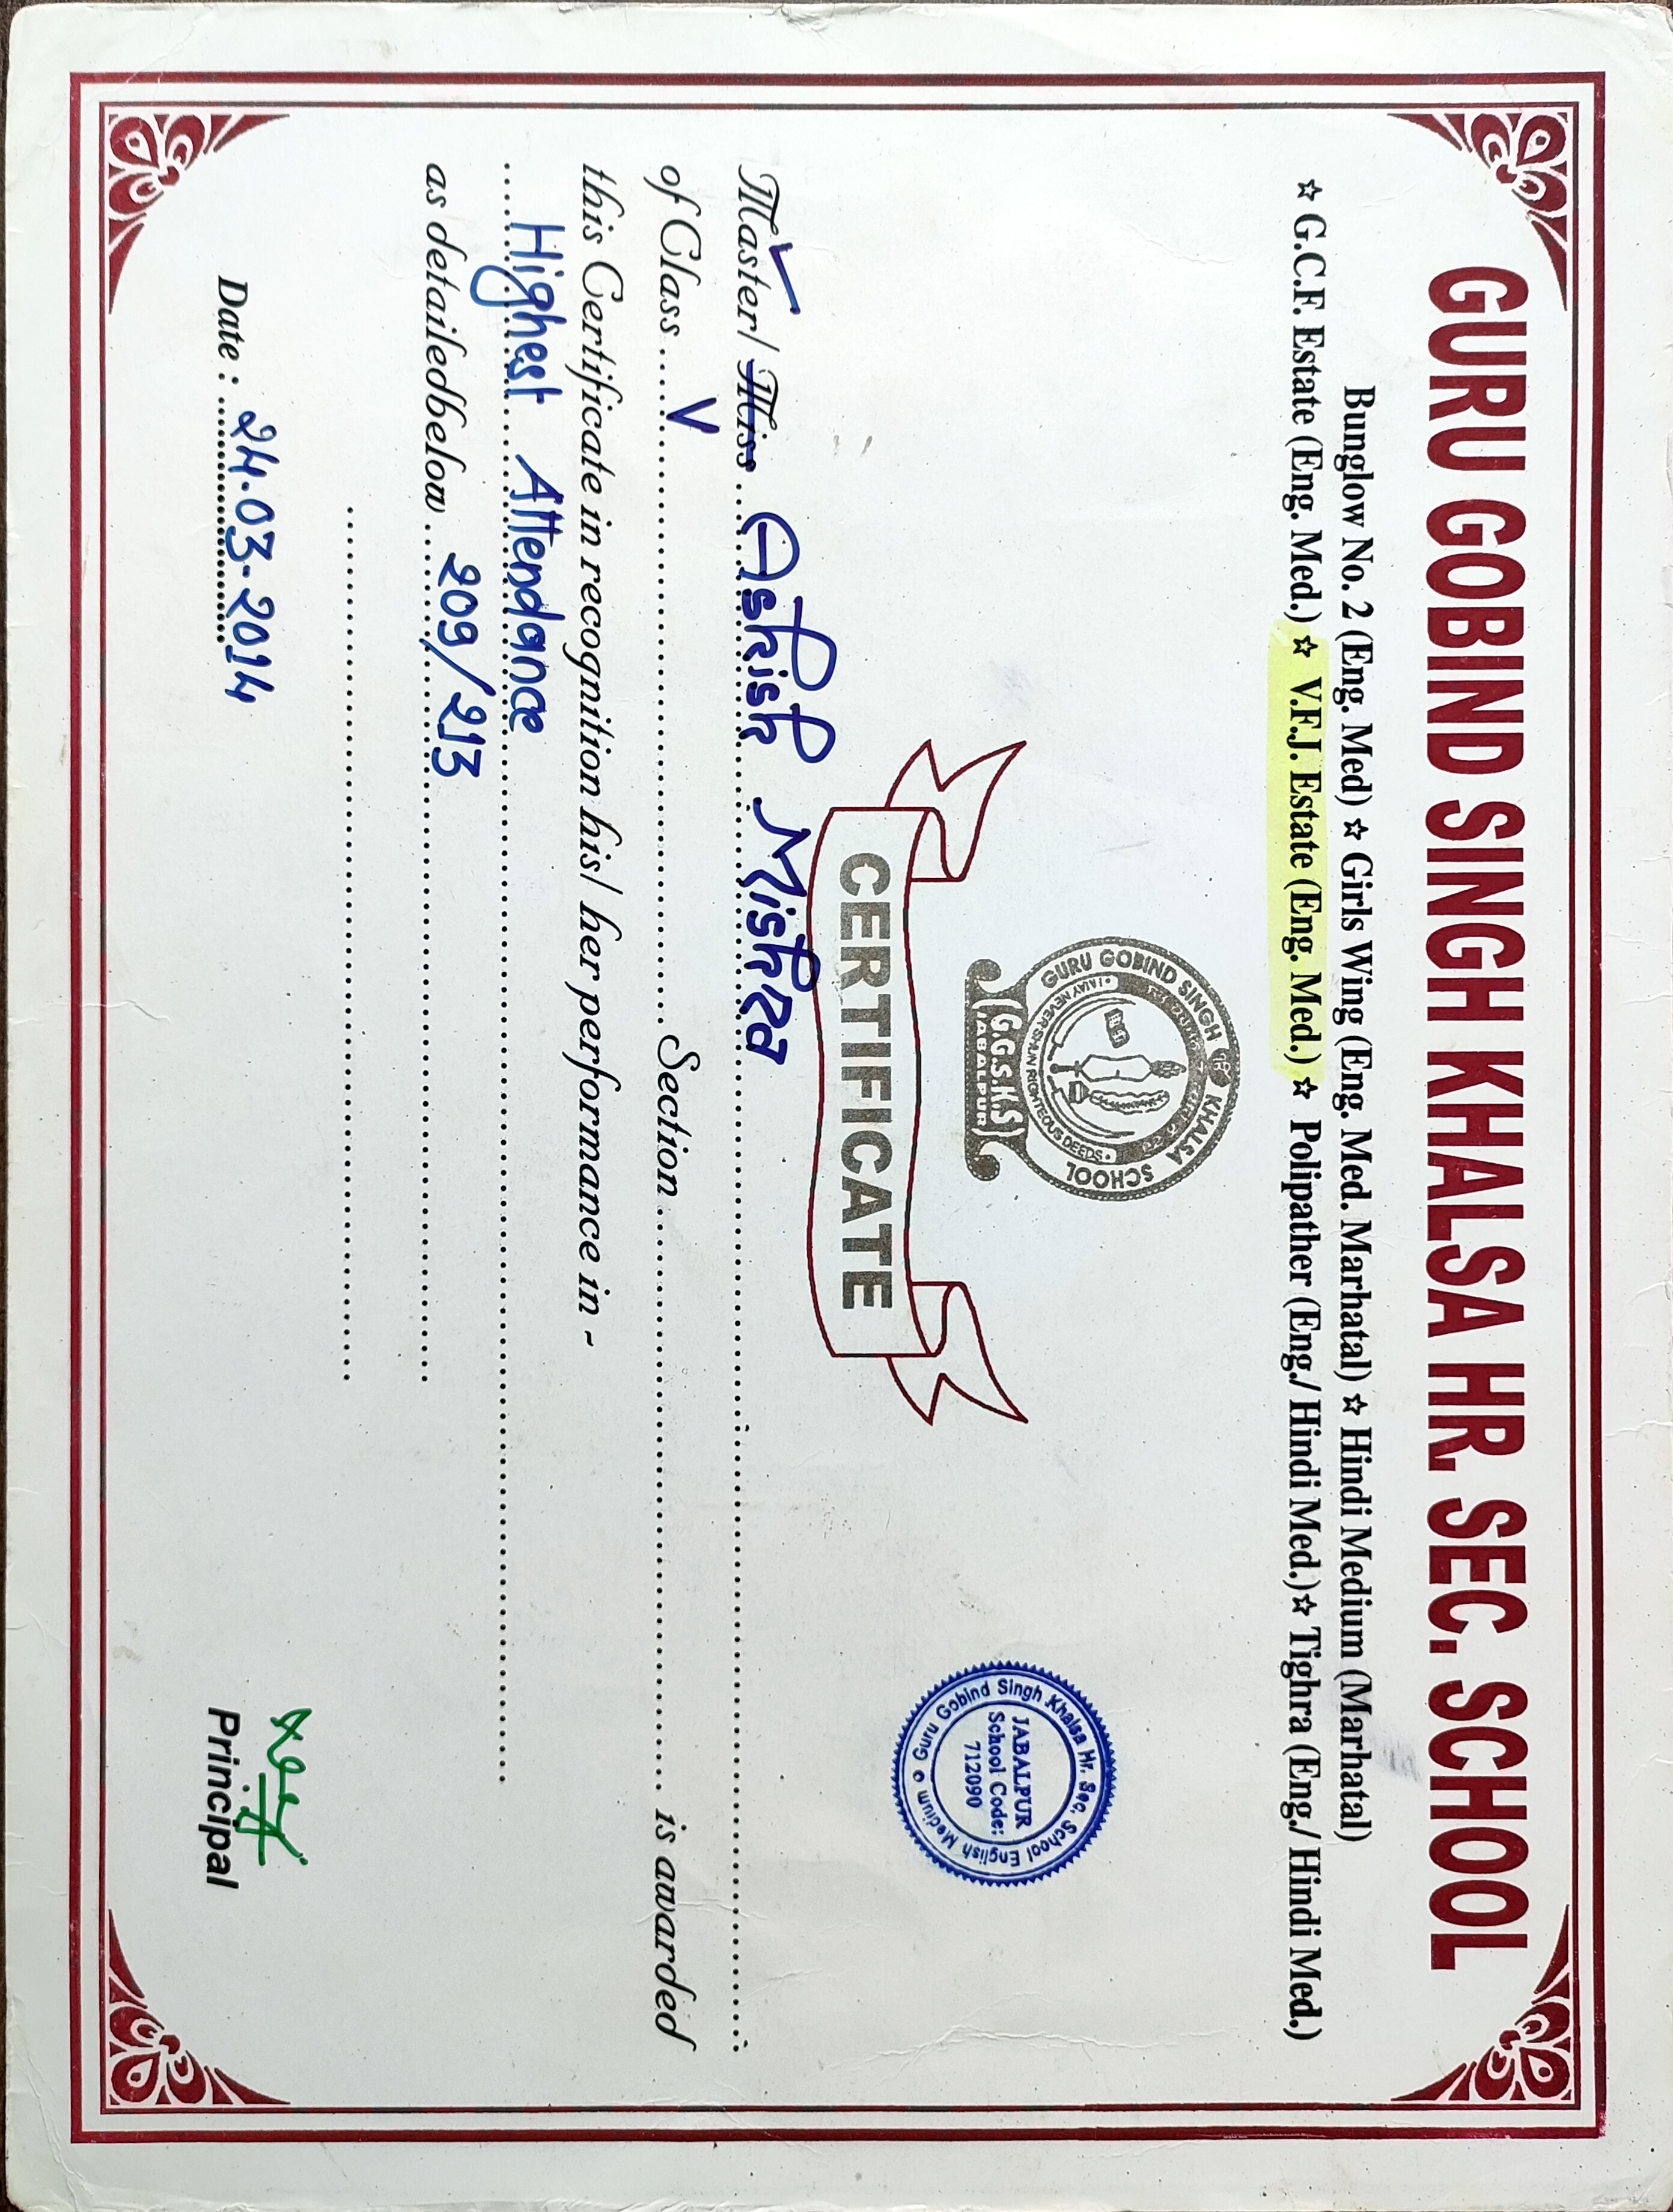 GURU GOBIND SINGH KHALSA HR. SEC. SCHOOL
Bunglow No. 2 (Eng. Med) ☆ Girls Wing (Eng. Med. Marhatal) ☆ Hindi Medium (Marhatal)
☆ G.C.F. Estate (Eng. Med.) ☆ V.F.J. Estate (Eng. Med.) ☆ Polipather (Eng./ Hindi Med.)☆ Tighra (Eng./ Hindi Med.)
GURU GOBIND SINGH ੴ KHALSA SCHOOL
· I MAY NEVER SHUN RIGHTEOUS DEEDS ·
G.G.S.K.S
JABALPUR
Guru Gobind Singh Khalsa Hr. Sec. School English Medium
JABALPUR
School Code:
712090
CERTIFICATE
Master/ Miss Ashish Mishra
of Class V Section is awarded
this Certificate in recognition his/ her performance in -
Highest Attendance
as detailedbelow 209/213
Date : 24-03-2014
Principal